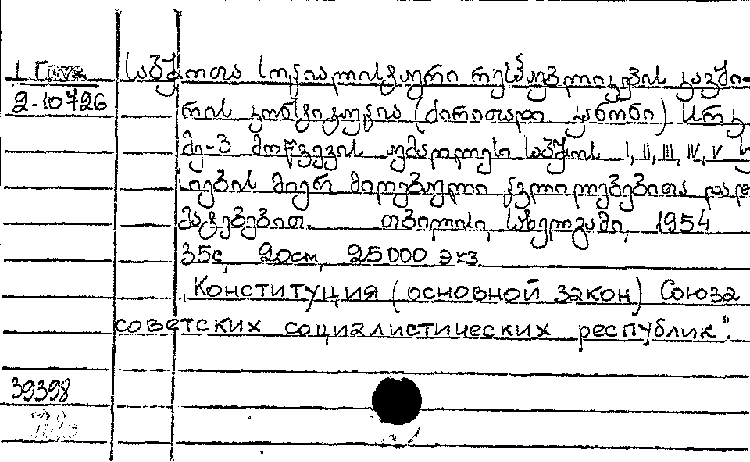 1 Груз საბჭოთა სოციალისტური რესპუბლიკების კავში-
2-10726 რის კონსტიტუცია (ძირითადი კანონი) სრკ
მე-3 მოწვევის უმაღლესი საბჭოს I, II, III, IV, V ს
იების მიერ მიღებული ცვლილებებითა და
მატებებით. თბილისი, სახელგამი, 1954
35с, 20см, 25000 экз.
„Конституция (основной закон) Союза
советских социалистических республик".
39398